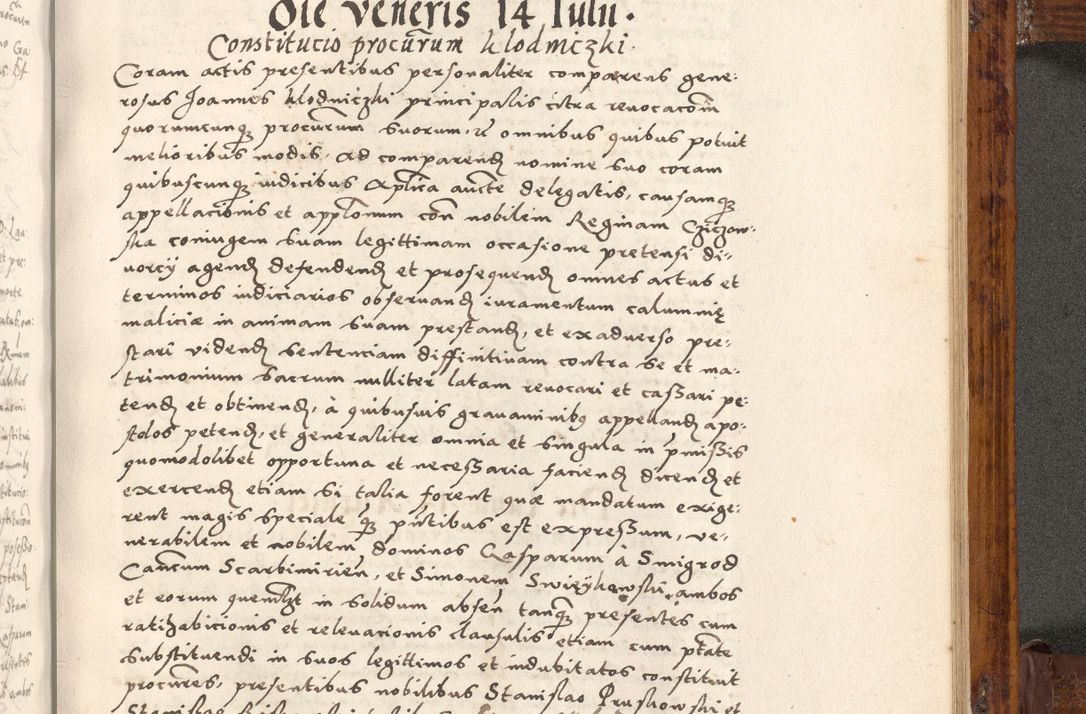 Die Veneris 14 Iulii.
Constitucio procurum Klodniczki.
Coram actis presentibus personaliter comparens gene:
rosus Joannes Klodniczki principalis citra reuocacom
quorumcunq procurum suorum, et omnibus quibus potuit
melioribus modis, ad comparend nomine suo coram
quibuscunq iudicibus aplica aucte delegatis, causamq
appellacionis et applonum con nobilem Reginam Cziczow:
ska coniugem suam legittimam occasione pretensi di=
uorcy agend defendend et prosequend omnes actus et
terminos iudiciarios obseruand iuramentum calumnię
maliciæ in animam suam prestand, et ex aduerso pre:
stari vidend sentenciam diffinitiuam contra se et ma:
trimonium sacrum nulliter latam reuocari et cassari pe:
tend et obtinend, à quibusuis grauaminibus appelland apo:
stolos petend, et generaliter omnia et singula in pmissis
quomodolibet opportuna et necessaria faciend dicend et
exercend etiam si talia forent quæ mandatum exige:
rent magis speciale q putibus est expressum, ve:
nerabilem et nobilem dominos Gasparum à Smigrod
Cancum Scarbimirien, et Simonem Swięykowski, ambos
et eorum quemlt in solidum absen tanq presentes cum
ratihabicionis et releuacionis clausulis etiam cum ptate
substituendi in suos legittimos et indubitatos constituit
procures, presentibus nobilibus Stanislao Pruskowski et